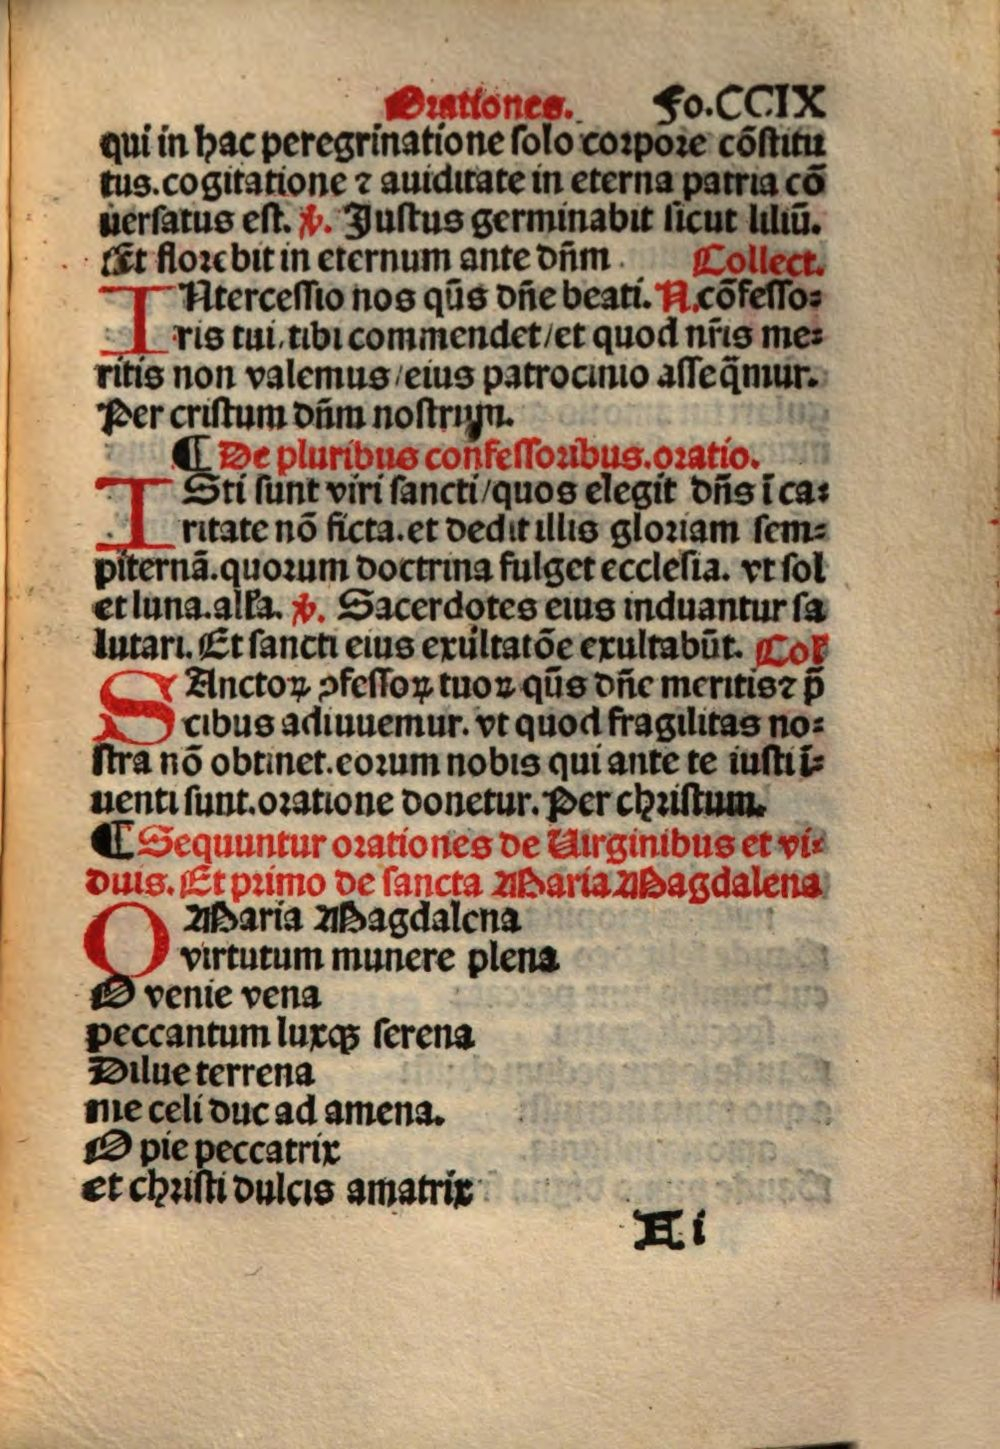 Orationes. Fo.CCIX
qui in hac peregrinatione ſolo coꝛpoꝛe cōſtitu
tus.cogitatione ⁊ auiditate in eterna patria cō
uerſatus eſt. ℣. Juſtus germinabit ſicut liliū.
Et floꝛebit in eternum ante dn̄m Collect.
INterceſſio nos qūs dn̄e beati. N.cōfeſſo⸗
ris tui, tibi commendet/et quod nr̄is me⸗
ritis non valemus/eius patrocinio aſſeq̄mur.
Per criſtum dn̄m noſtrum.
¶ De pluribus confeſſoꝛibus.oꝛatio.
ISti ſunt viri ſancti/quos elegit dn̄s ī ca⸗
ritate nō ficta.et dedit illis gloꝛiam ſem⸗
piternā.quoꝛum doctrina fulget eccleſia. vt ſol
et luna.alľa. ℣. Sacerdotes eius induantur ſa
lutari. Et ſancti eius exultatōe exultabūt. Coľ
SAnctoꝝ ꝯfeſſoꝝ tuoꝝ qūs dn̄e meritis⁊ p̄
cibus adiuuemur. vt quod fragilitas no⸗
ſtra nō obtinet.eoꝛum nobis qui ante te iuſti ī⸗
uenti ſunt.oꝛatione donetur. Per chꝛiſtum.
¶ Sequuntur oꝛationes de Uirginibus et vi⸗
duis. Et pꝛimo de ſancta Maria Magdalena
O Maria Magdalena
virtutum munere plena
O venie vena
peccantum luxqꝫ ſerena
Dilue terrena
me celi duc ad amena.
O pie peccatrix
et chꝛiſti dulcis amatrix
A i